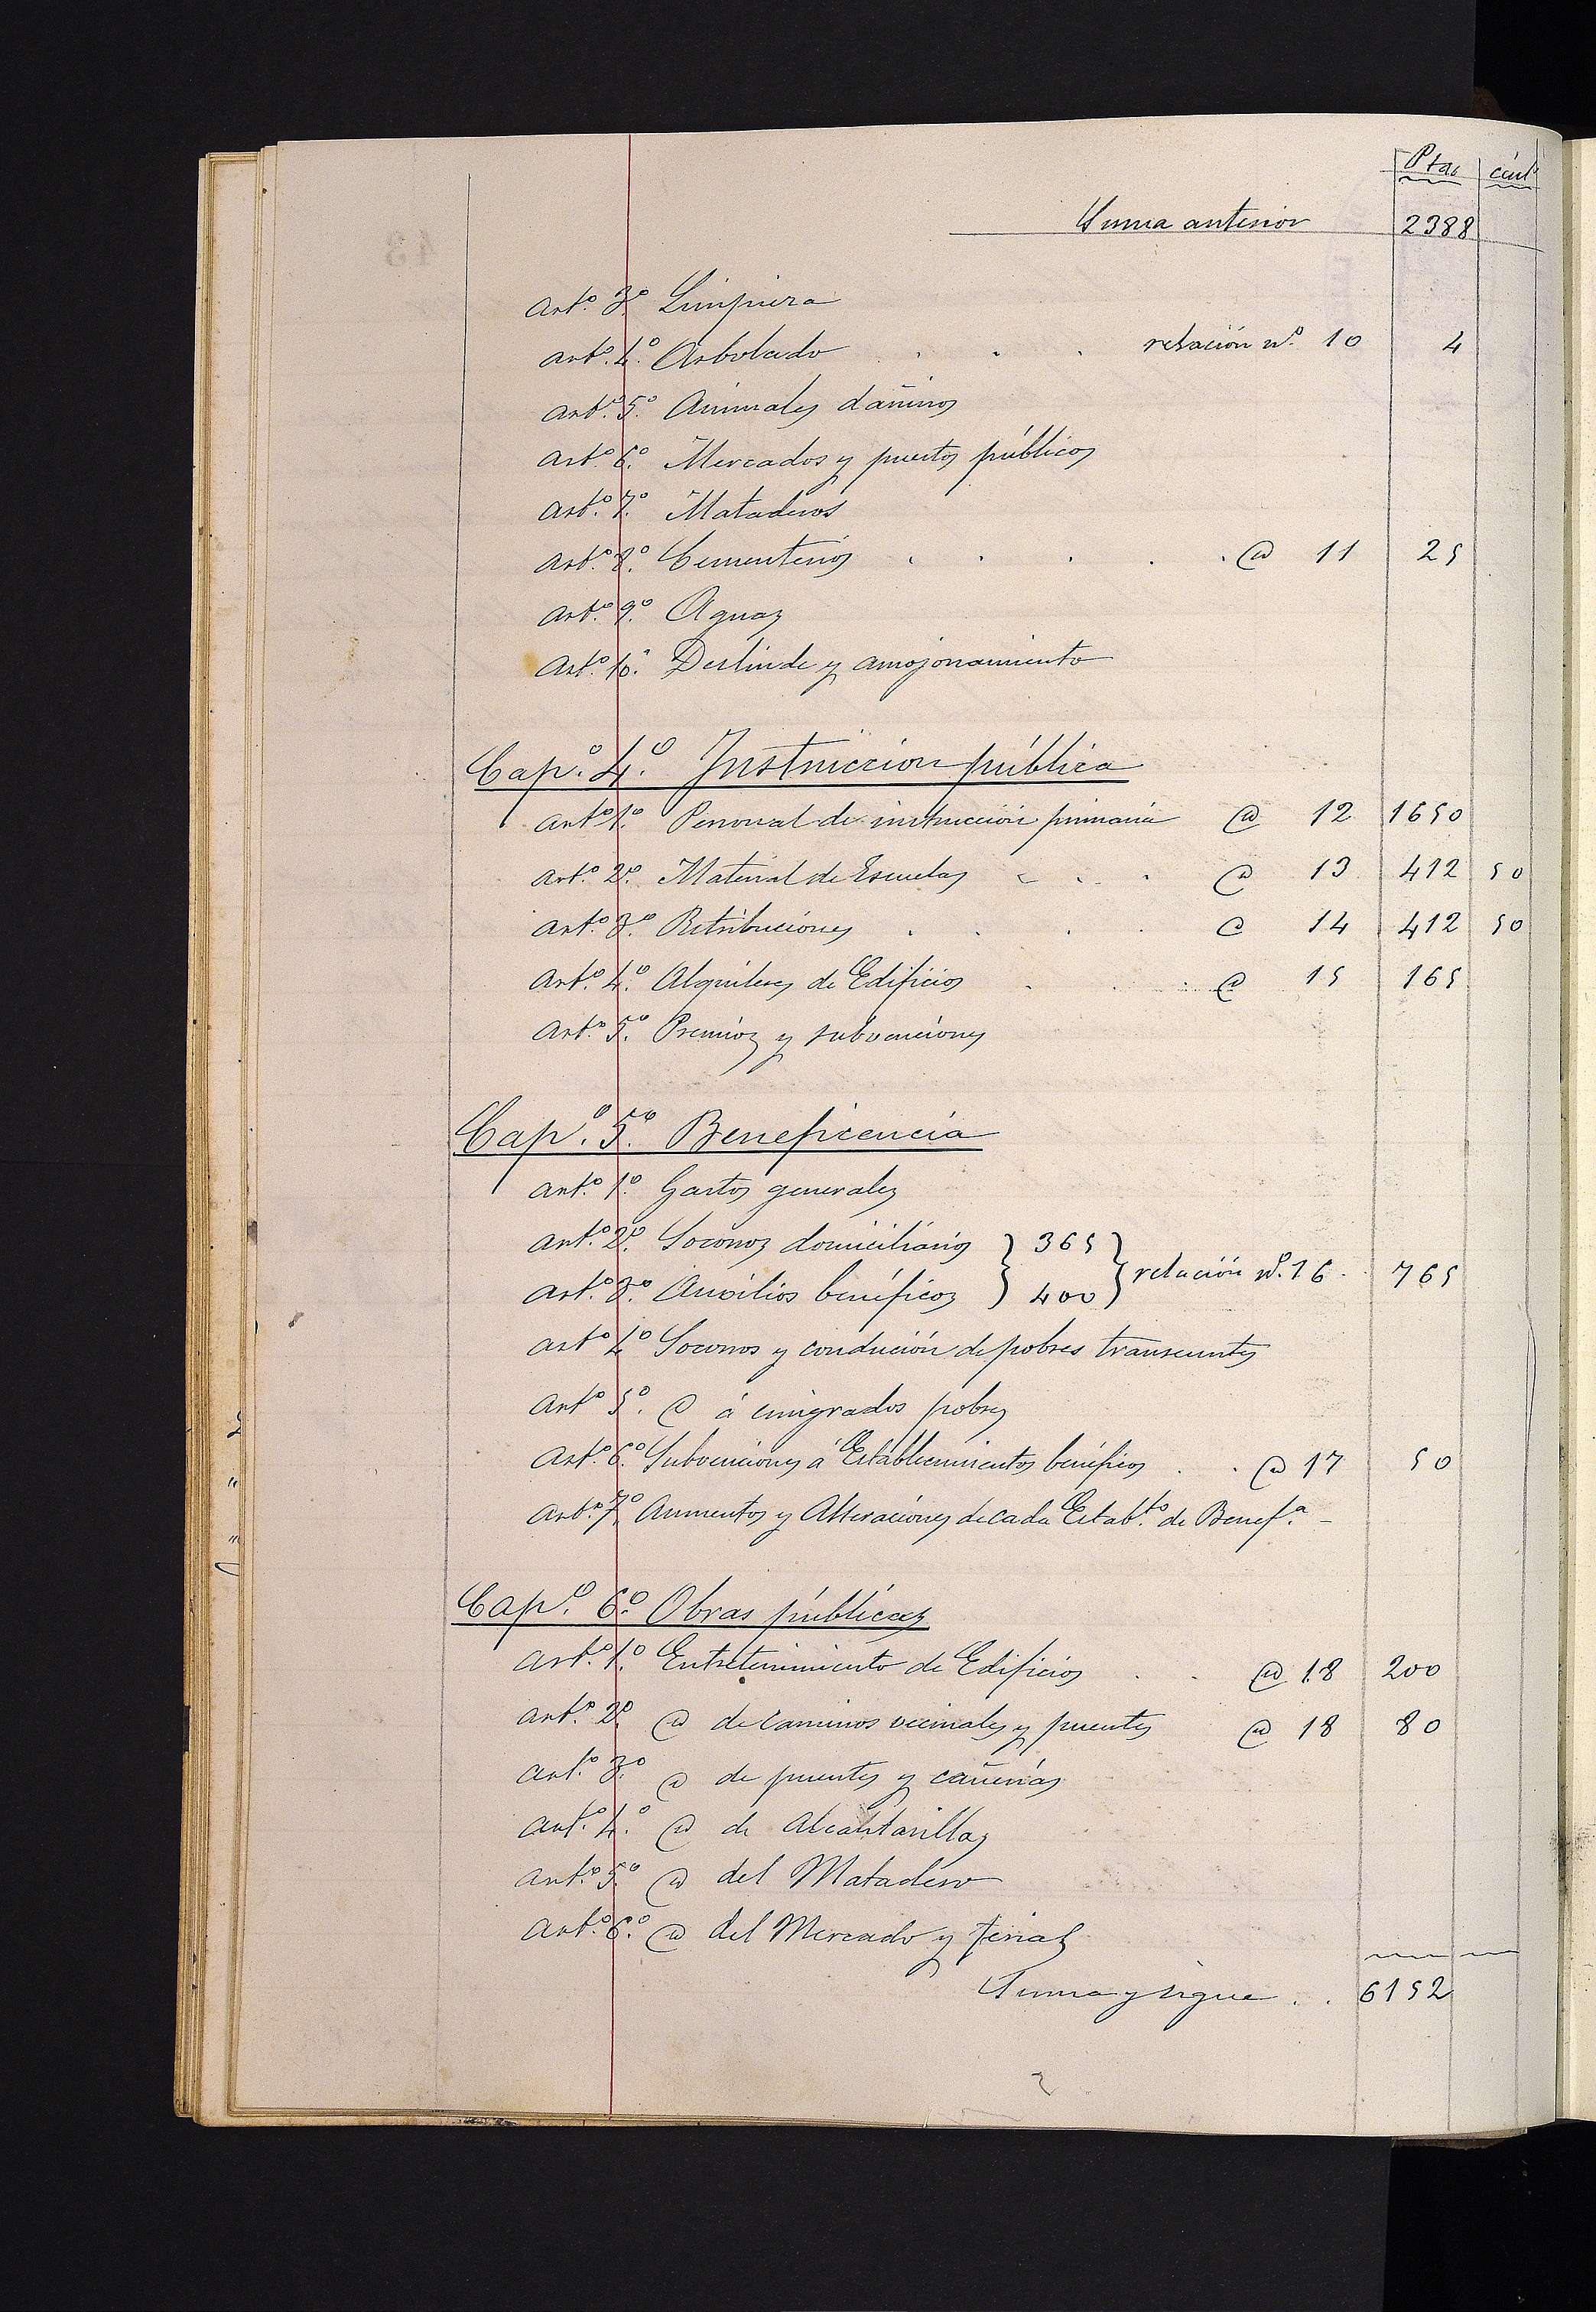 Ptas cént.
Suma anterior 2388
Artº. 3º. Limpieza
Artº. 4º. Arbolado . . . relación nº. 10 4
Artº. 5º. Animales dañinos
Artº. 6º. Mercados y puestos públicos
Artº. 7º. Mataderos
Artº. 8º. Cementerios . . . . . @ 11 25
Artº. 9º. Aguas
Artº. 10º. Deslinde y amojonamiento
Capº. 4º. Instruccion pública
Artº. 1º. Personal de instrucción primaria @ 12 1650
Artº. 2º. Material de Escuelas . . . @ 13 412 50
Artº. 3º. Retribuciones . . . . @ 14 412 50
Artº. 4º. Alquileres de Edificios . . . @ 15 165
Artº. 5º. Premios y subvenciones
Capº. 5º. Beneficencia
Artº. 1º. Gastos generales
Artº. 2º. Socorros domiciliarios } 365 }
Artº. 3º. Auxilios benéficos } 400 } relación nº. 16 . 765
Artº 4º Socorros y condución de pobres transeuntes
Artº 5º. @ á emigrados pobres
Artº. 6º. Subvenciones á Establecimientos benéficos . . @ 17 50
Artº. 7º. Aumentos y Alteraciones de cada Estabto. de Benefª. -
Capº. 6º. Obras públicas
Artº. 1º. Entretenimiento de Edificios . . @ 18 200
Artº. 2º. @ de caminos vecinales y puentes @ 18 80
Artº. 3º. @ de fuentes y cañerías
Artº. 4º. @ de Alcantarillas
Artº. 5º. @ del Matadero
Artº. 6º. @ del Mercado y ferias
Suma y sigue . . 6152